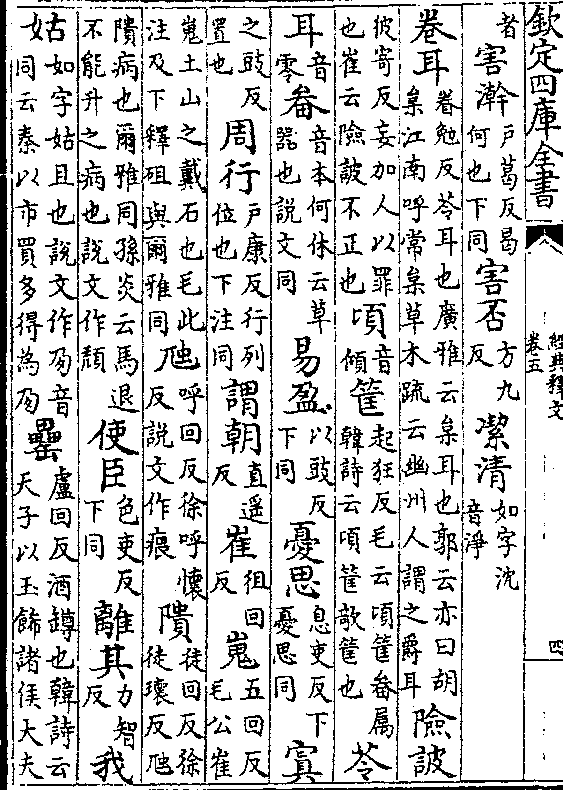 欽定四庫全書 經典釋文 卷五 四
者害澣戶葛反曷何也下同害否方九反潔清如字沈音淨
卷耳眷勉反苓耳也廣雅云枲耳也郭云亦曰胡枲江南呼常枲草木疏云幽州人謂之爵耳險詖
彼寄反妄加人以罪也崔云險詖不正也頃音傾筐起狂反毛云頃筐畚屬韓詩云頃筐欹筐也苓
耳音零畚音本何休云草器也說文同易盈以豉反下同憂思息吏反下憂思同寘
之豉反置也周行戶康反行列位也下注同謂朝直遥反崔徂回反嵬五回反毛公崔
嵬土山之戴石也毛此注及下釋砠與爾雅同虺呼回反徐呼懷反說文作痕隤徒回反徐徒瓌反虺
隤病也爾雅同孫炎云馬退不能升之病也說文作頹使臣色吏反下同離其力智反我
姑如字姑且也說文作夃音同云秦以市買多得為夃罍盧回反酒罇也韓詩云天子以玉飾諸侯大夫